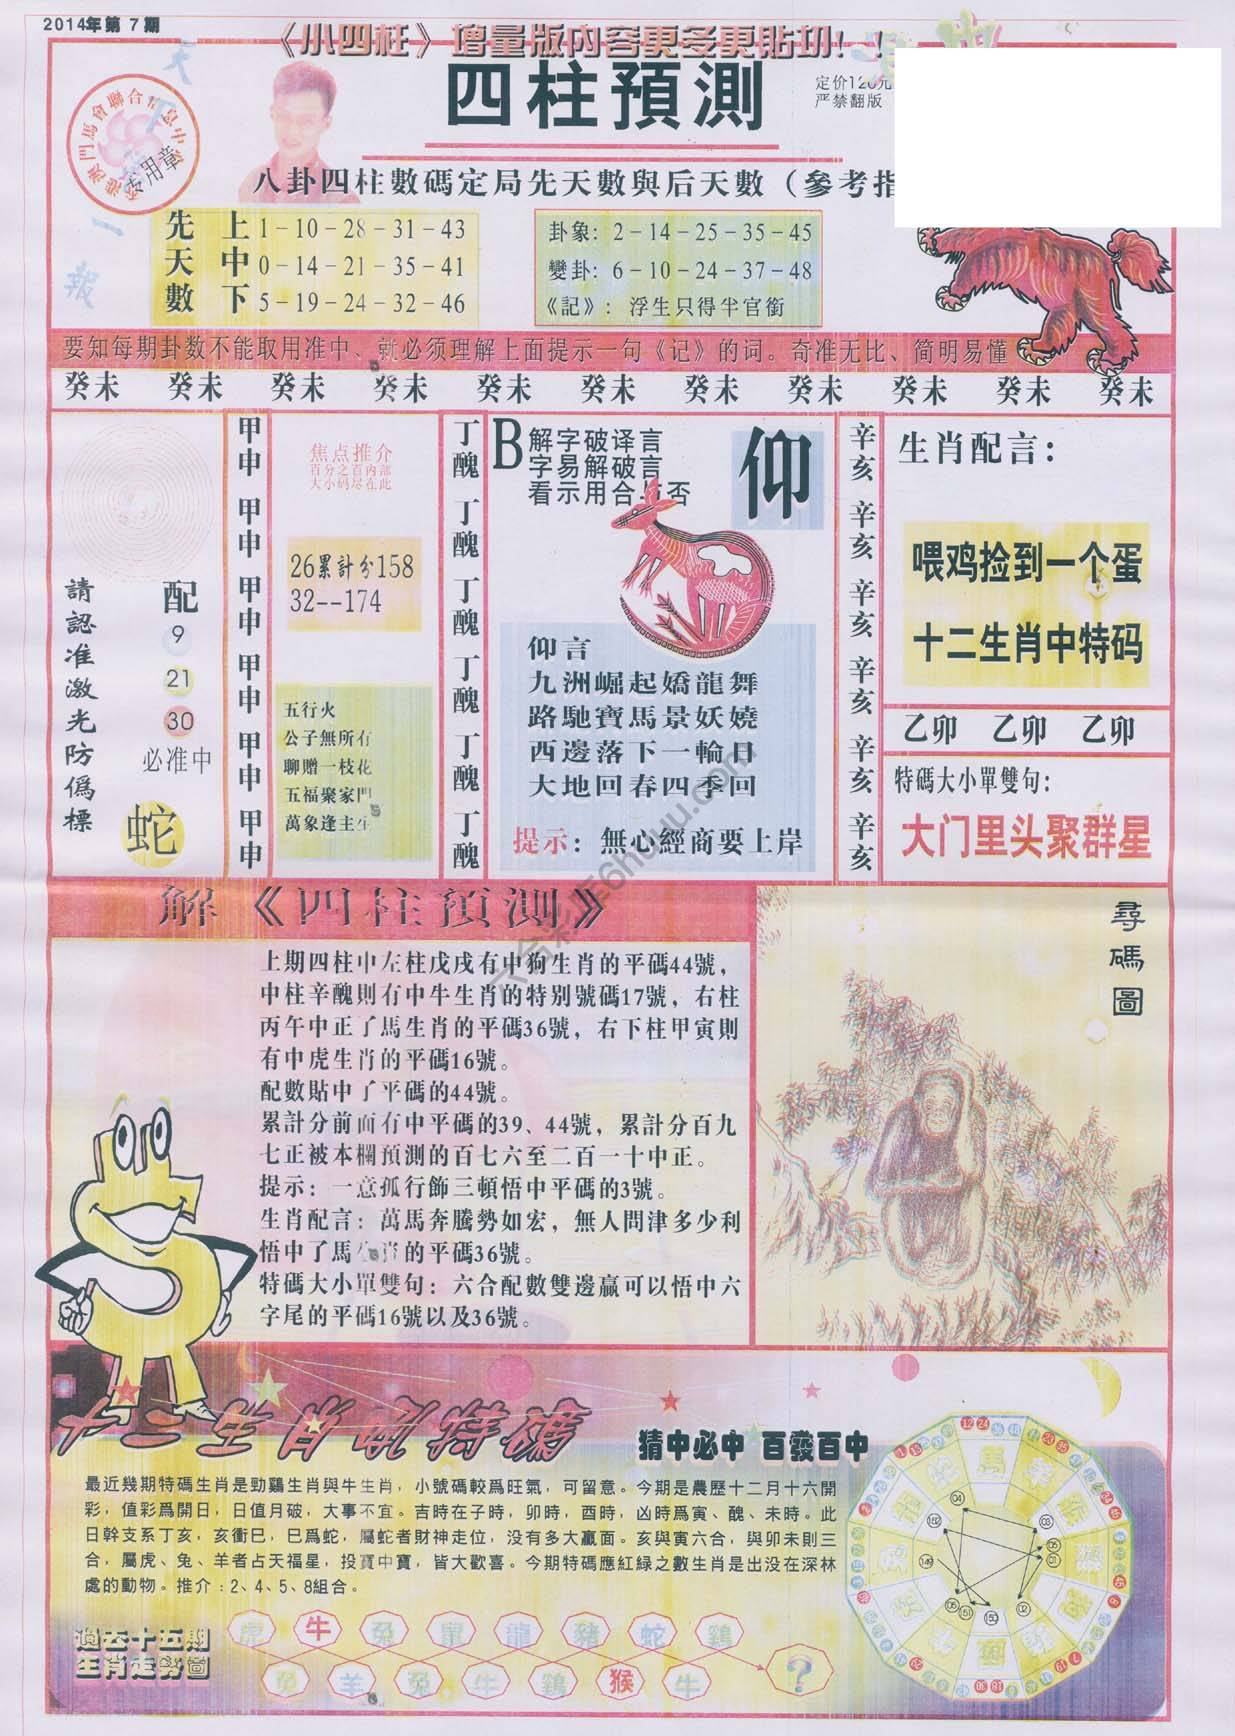 2014年第 7 期
《小四柱》增量版內容更多更貼切！！
四柱預測
定价120元
严禁翻版
天
一
報
专用章
八卦四柱數碼定局先天數與后天數（參考指
先天數
上 1-10-28-31-43
中 0-14-21-35-41
下 5-19-24-32-46
卦象: 2-14-25-35-45
變卦: 6-10-24-37-48
《記》: 浮生只得半官銜
要知每期卦数不能取用准中、就必须理解上面提示一句《记》的词。奇准无比、简明易懂
癸未 癸未 癸未 癸未 癸未 癸未 癸未 癸未 癸未 癸未 癸未
請認准激光防僞標
配
9
21
30
必准中
蛇
甲申 甲申 甲申 甲申 甲申 甲申
焦点推介
百分之百内部
大小码尽在此
26累計分158
32--174
五行火
公子無所有
聊贈一枝花
五福聚家門
萬象逢主生
丁醜 丁醜 丁醜 丁醜 丁醜 丁醜
B
解字破译言
字易解破言
看示用合与否
仰
仰言
九洲崛起嬌龍舞
路馳寶馬景妖嬈
西邊落下一輪日
大地回春四季回
提示: 無心經商要上岸
辛亥 辛亥 辛亥 辛亥 辛亥 辛亥
生肖配言:
喂鸡捡到一个蛋
十二生肖中特码
乙卯 乙卯 乙卯
特碼大小單雙句:
大门里头聚群星
解《四柱預測》
上期四柱中左柱戊戌有中狗生肖的平碼44號，
中柱辛醜則有中牛生肖的特别號碼17號，右柱
丙午中正了馬生肖的平碼36號，右下柱甲寅則
有中虎生肖的平碼16號。
配數貼中了平碼的44號。
累計分前面有中平碼的39、44號，累計分百九
七正被本欄預測的百七六至二百一十中正。
提示: 一意孤行飾三頓悟中平碼的3號。
生肖配言: 萬馬奔騰勢如宏，無人問津多少利
悟中了馬生肖的平碼36號。
特碼大小單雙句: 六合配數雙邊贏可以悟中六
字尾的平碼16號以及36號。
尋碼圖
六合彩库6huuu.com
猜中必中 百發百中
最近幾期特碼生肖是勁鷄生肖與牛生肖，小號碼較爲旺氣，可留意。今期是農歷十二月十六開
彩，值彩爲開日，日值月破，大事不宜。吉時在子時，卯時，酉時，凶時爲寅、醜、未時。此
日幹支系丁亥，亥衝巳，巳爲蛇，屬蛇者財神走位，没有多大贏面。亥與寅六合，與卯未則三
合，屬虎、兔、羊者占天福星，投寶中寶，皆大歡喜。今期特碼應紅綠之數生肖是出没在深林
處的動物。推介:2、4、5、8組合。
過去十五期
生肖走勢圖
虎 牛 兔 鼠 龍 豬 蛇 鷄
兔 羊 兔 牛 鷄 猴 牛 ?